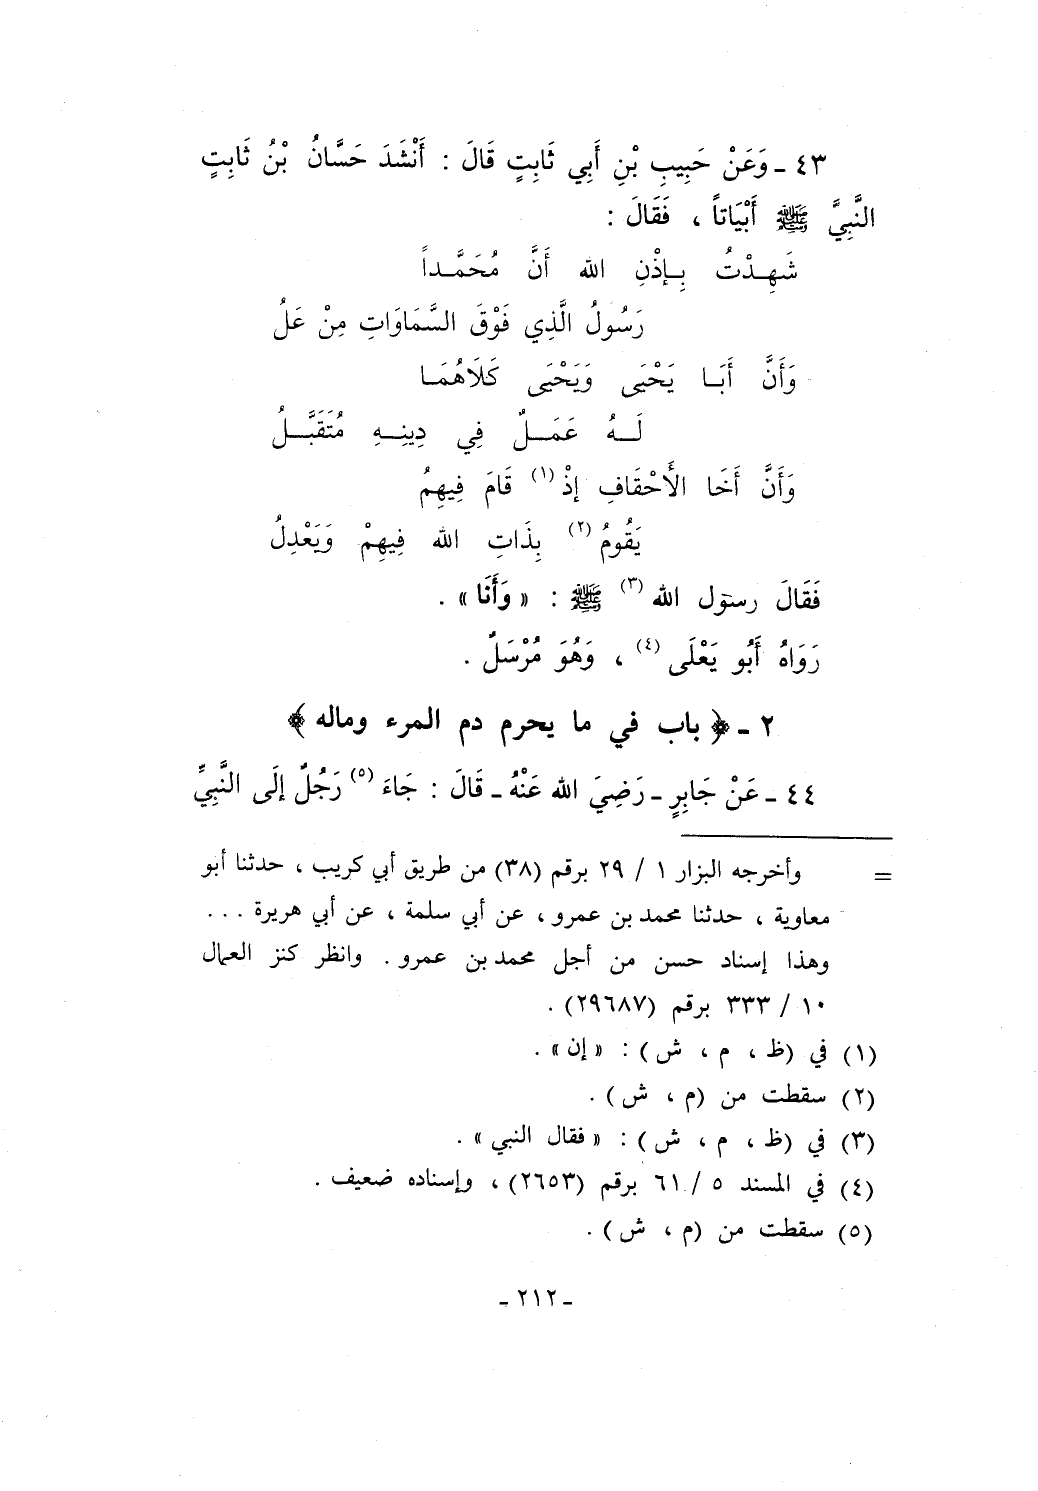 ٤٣ - وَعَنْ حَبِيبِ بْنِ أَبِي ثَابِتٍ قَالَ : أَنْشَدَ حَسَّانُ بْنُ ثَابِتٍ
النَّبِيَّ ﷺ أَبْيَاتاً ، فَقَالَ :
شَهِـدْتُ بِـإِذْنِ الله أَنَّ مُحَمَّـداً
رَسُولُ الَّذِي فَوْقَ السَّمَاوَاتِ مِنْ عَلُ
وَأَنَّ أَبَـا يَحْيَى وَيَحْيَى كَلَاهُمَـا
لَـهُ عَمَـلٌ فِي دِينِـهِ مُتَقَبَّـلُ
وَأَنَّ أَخَا الأَحْقَافِ إذْ (١) قَامَ فِيهِمُ
يَقُومُ (٢) بِذَاتِ الله فِيهِمْ وَيَعْدِلُ
فَقَالَ رسول الله (٣) ﷺ : « وَأَنَا » .
رَوَاهُ أَبُو يَعْلَى (٤) ، وَهُوَ مُرْسَلٌ .
٢ - ﴿ باب في ما يحرم دم المرء وماله ﴾
٤٤ - عَنْ جَابِرٍ - رَضِيَ الله عَنْهُ - قَالَ : جَاءَ (٥) رَجُلٌ إلَى النَّبِيِّ
= وأخرجه البزار ١ / ٢٩ برقم (٣٨) من طريق أبي كريب ، حدثنا أبو
معاوية ، حدثنا محمد بن عمرو ، عن أبي سلمة ، عن أبي هريرة ...
وهذا إسناد حسن من أجل محمد بن عمرو . وانظر كنز العمال
١٠ / ٣٣٣ برقم (٢٩٦٨٧) .
(١) في (ظ ، م ، ش) : « إن » .
(٢) سقطت من (م ، ش) .
(٣) في (ظ ، م ، ش) : « فقال النبي » .
(٤) في المسند ٥ / ٦١ برقم (٢٦٥٣) ، وإسناده ضعيف .
(٥) سقطت من (م ، ش) .
- ٢١٢ -